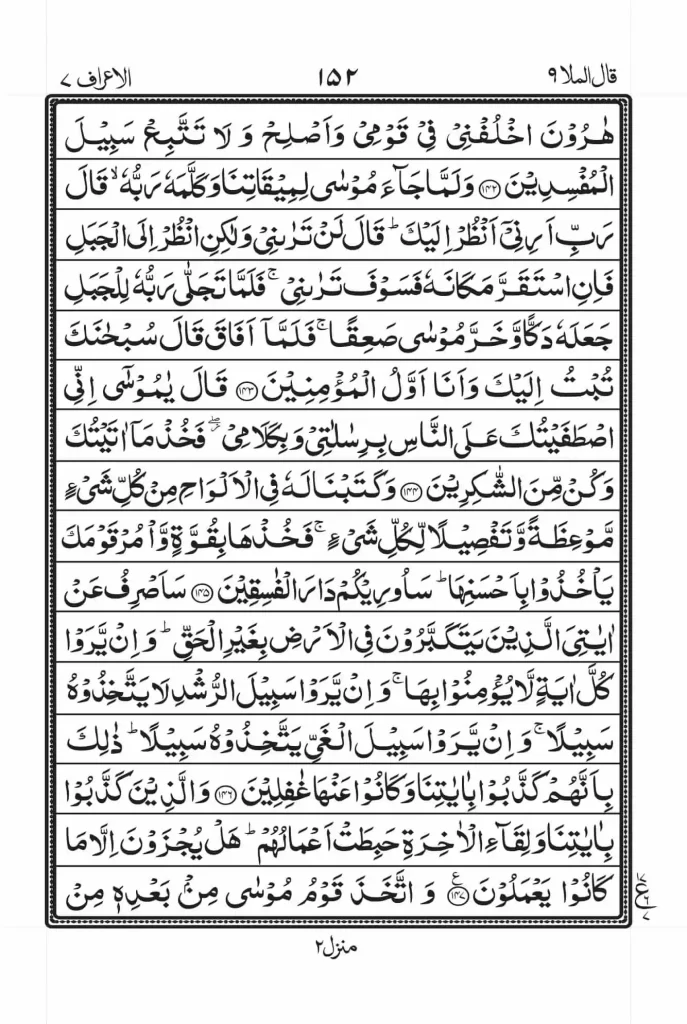 قال الملا ۹ ۱۵۲ الاعراف ۷
هٰرُوْنَ اخْلُفْنِيْ فِيْ قَوْمِيْ وَاَصْلِحْ وَ لَا تَتَّبِعْ سَبِيْلَ
الْمُفْسِدِيْنَ ﴿۱۴۲﴾ وَلَمَّا جَآءَ مُوْسٰى لِمِيْقَاتِنَا وَكَلَّمَهٗ رَبُّهٗ ۙ قَالَ
رَبِّ اَرِنِيْۤ اَنْظُرْ اِلَيْكَ ؕ قَالَ لَنْ تَرٰىنِيْ وَلٰكِنِ انْظُرْ اِلَى الْجَبَلِ
فَاِنِ اسْتَقَرَّ مَكَانَهٗ فَسَوْفَ تَرٰىنِيْ ۚ فَلَمَّا تَجَلّٰى رَبُّهٗ لِلْجَبَلِ
جَعَلَهٗ دَكًّا وَّخَرَّ مُوْسٰى صَعِقًا ۚ فَلَمَّاۤ اَفَاقَ قَالَ سُبْحٰنَكَ
تُبْتُ اِلَيْكَ وَاَنَا اَوَّلُ الْمُؤْمِنِيْنَ ﴿۱۴۳﴾ قَالَ يٰمُوْسٰۤى اِنِّي
اصْطَفَيْتُكَ عَلَى النَّاسِ بِرِسٰلٰتِيْ وَبِكَلَامِيْ ۖؗ فَخُذْ مَاۤ اٰتَيْتُكَ
وَكُنْ مِّنَ الشّٰكِرِيْنَ ﴿۱۴۴﴾ وَكَتَبْنَا لَهٗ فِي الْاَلْوَاحِ مِنْ كُلِّ شَيْءٍ
مَّوْعِظَةً وَّتَفْصِيْلًا لِّكُلِّ شَيْءٍ ۚ فَخُذْهَا بِقُوَّةٍ وَّاْمُرْ قَوْمَكَ
يَاْخُذُوْا بِاَحْسَنِهَا ؕ سَاُورِيْكُمْ دَارَ الْفٰسِقِيْنَ ﴿۱۴۵﴾ سَاَصْرِفُ عَنْ
اٰيٰتِيَ الَّذِيْنَ يَتَكَبَّرُوْنَ فِي الْاَرْضِ بِغَيْرِ الْحَقِّ ؕ وَاِنْ يَّرَوْا
كُلَّ اٰيَةٍ لَّا يُؤْمِنُوْا بِهَا ۚ وَاِنْ يَّرَوْا سَبِيْلَ الرُّشْدِ لَا يَتَّخِذُوْهُ
سَبِيْلًا ۚ وَاِنْ يَّرَوْا سَبِيْلَ الْغَيِّ يَتَّخِذُوْهُ سَبِيْلًا ؕ ذٰلِكَ
بِاَنَّهُمْ كَذَّبُوْا بِاٰيٰتِنَا وَكَانُوْا عَنْهَا غٰفِلِيْنَ ﴿۱۴۶﴾ وَالَّذِيْنَ كَذَّبُوْا
بِاٰيٰتِنَا وَلِقَآءِ الْاٰخِرَةِ حَبِطَتْ اَعْمَالُهُمْ ؕ هَلْ يُجْزَوْنَ اِلَّا مَا
كَانُوْا يَعْمَلُوْنَ ﴿۱۴۷﴾ع وَ اتَّخَذَ قَوْمُ مُوْسٰى مِنْۢ بَعْدِهٖ مِنْ
منزل ۲